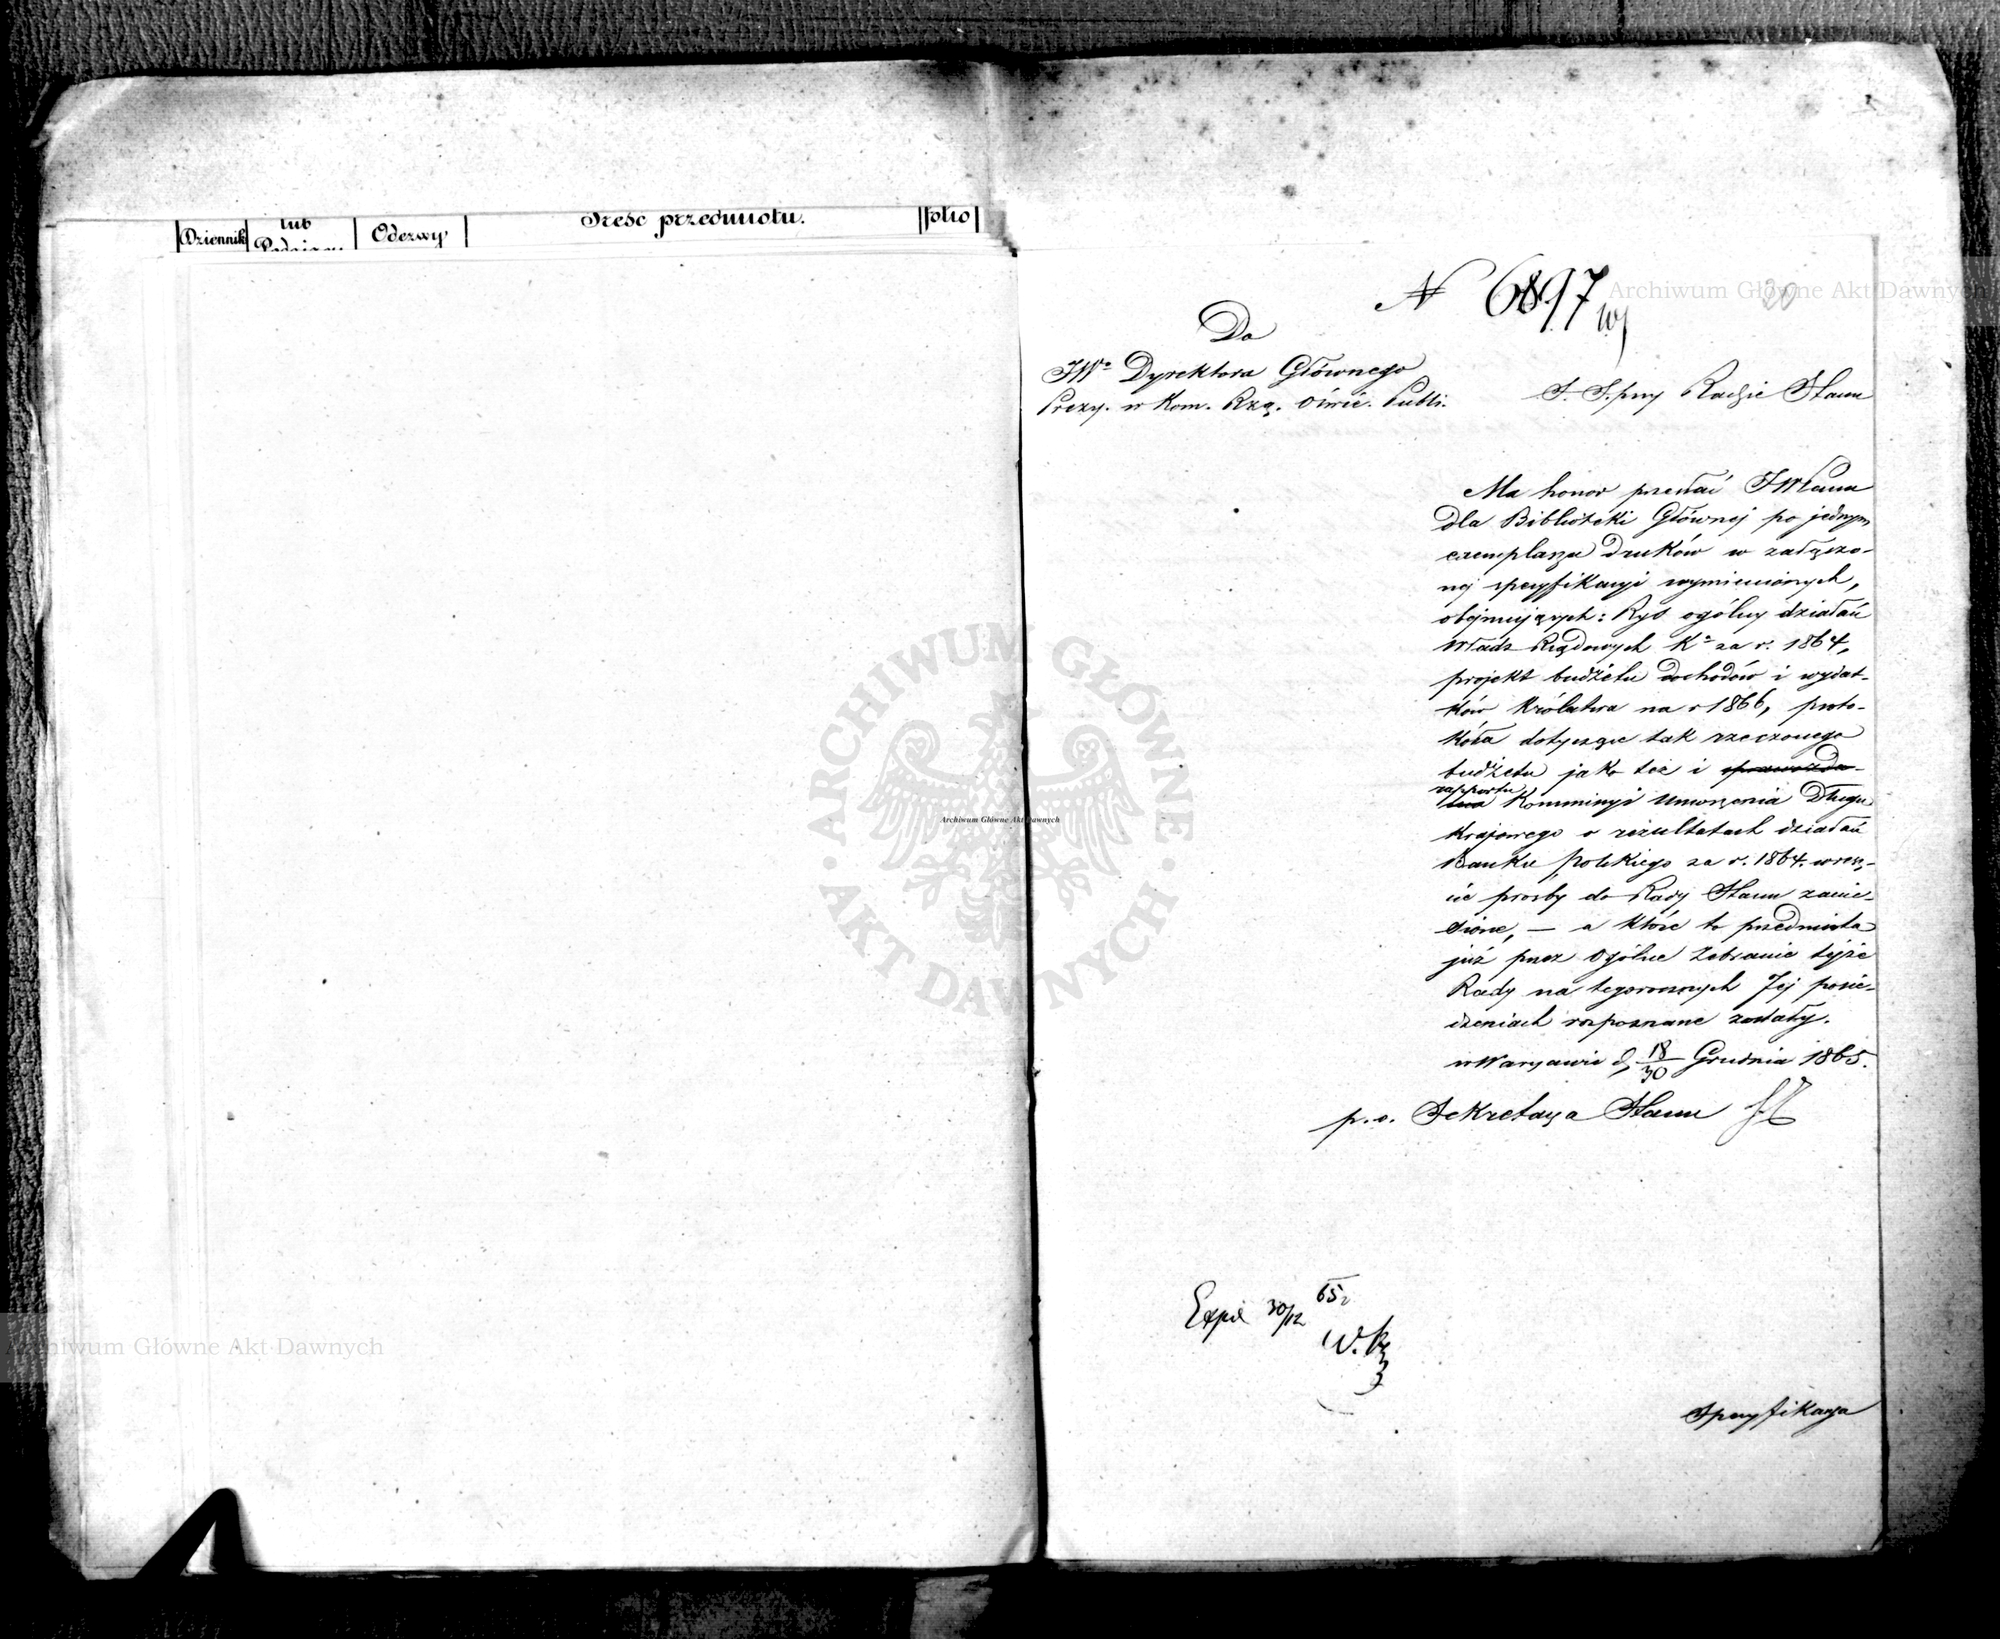 Dziennik
lub
Odezwy
Treść przedmiotu.
folio
№ 6897
20
Do
JWo Dyrektora Głównego
Prezy. w Kom. Rzą. Oświe. Publi.
S. S. przy Radzie Stanu
Ma honor przesłać JWPanu
dla Biblioteki Głównej po jednym
exemplarzu druków w załączo-
nej specyfikacyi wymienionych,
obejmujących: Rys ogólny działań
Władz Rządowych Ka za r. 1864,
projekt budżetu dochodów i wydat-
ków Królestwa na r 1866, proto-
kóła dotyczące tak rzeczonego
budżetu jako też i sprawozda-
rapportu
nia Kommissyi Umorzenia Długu
Krajowego o rezultatach działań
Banku polskiego za r. 1864. wresz-
cie prośby do Rady Stanu zanie-
sione, — a które to przedmiota
już przez Ogólne Zebranie tejże
Rady na tegorocznych Jej posie-
dzeniach rozpoznane zostały.
w Warszawie d. 18/30 Grudnia 1865.
p. o. Sekretarza Stanu
Exped 30/12 65r
W. K
Specyfikacya
Archiwum Główne Akt Dawnych
Archiwum Główne Akt Dawnych
Archiwum Główne Akt Dawnych
ARCHIWUM GŁÓWNE · AKT DAWNYCH ·